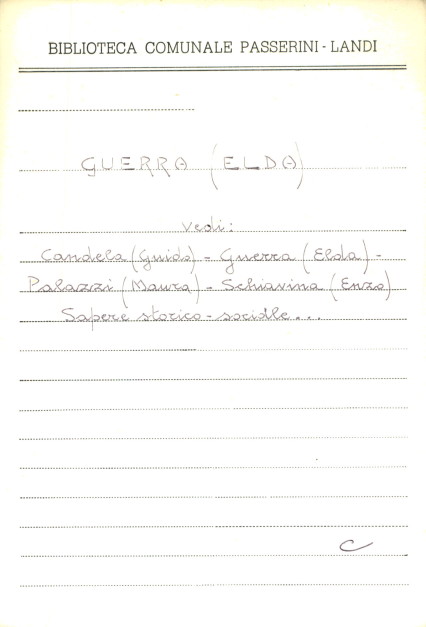 BIBLIOTECA COMUNALE PASSERINI - LANDI
GUERRA (ELDA)
Vedi:
Candela (Guido) - Guerra (Elda) -
Palazzi (Maura) - Schiavina (Enzo)
Sapere storico - sociale...
C